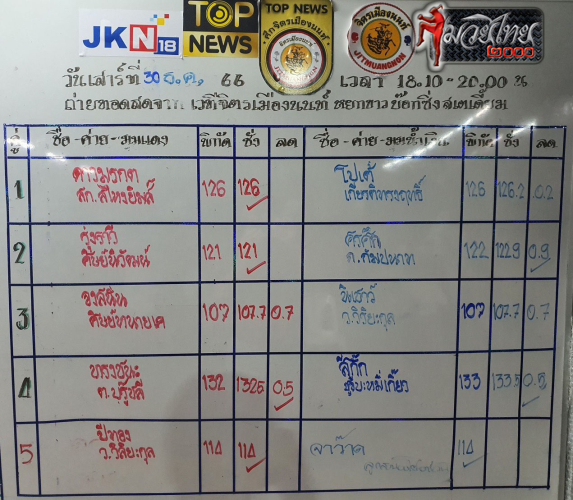 JKN18
TOP NEWS
TOP NEWS
ศึกจิตรเมืองนนท์
JITMUANGNON
จิตรเมืองนนท์
JITMUANGNON
มวยไทย
๒๐๐๐
วันเสาร์ที่ 30 ธ.ค. 66 เวลา 18.10-20.00 น
ถ่ายทอดสดจาก เวทีจิตรเมืองนนท์ หอการบ๊อกซิ่งสเตเดี้ยม
คู่ ชื่อ-ค่าย-มุมแดง พิกัด ชั่ง ลด ชื่อ-ค่าย-มุมน้ำเงิน พิกัด ชั่ง ลด
1 ดาวมรกต 126 126 โปเต้ 126 126.2 0.2
สก.สไหงยิมส์ เกียรติทรงฤทธิ์
2 รุ่งราวี 121 121 122 122.9 0.9
ศิษย์นิวัฒน์
3 107 107.7 0.7 107 107.7 0.7
ศิษย์ทนายเค ว.วิริยะกุล
4 132 132.5 0.5 133 133.5 0.5
5 ปีทอง 114 114 ลาว้าด 114
ว.วิริยะกุล